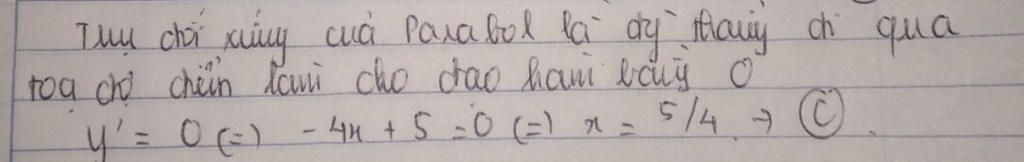 Trục đối xứng của Parabol là đg thẳng đi qua
toạ độ điểm làm cho đạo hàm bằng 0
y' = 0 (=) - 4x + 5 = 0 (=) x = 5/4 → Ⓒ.